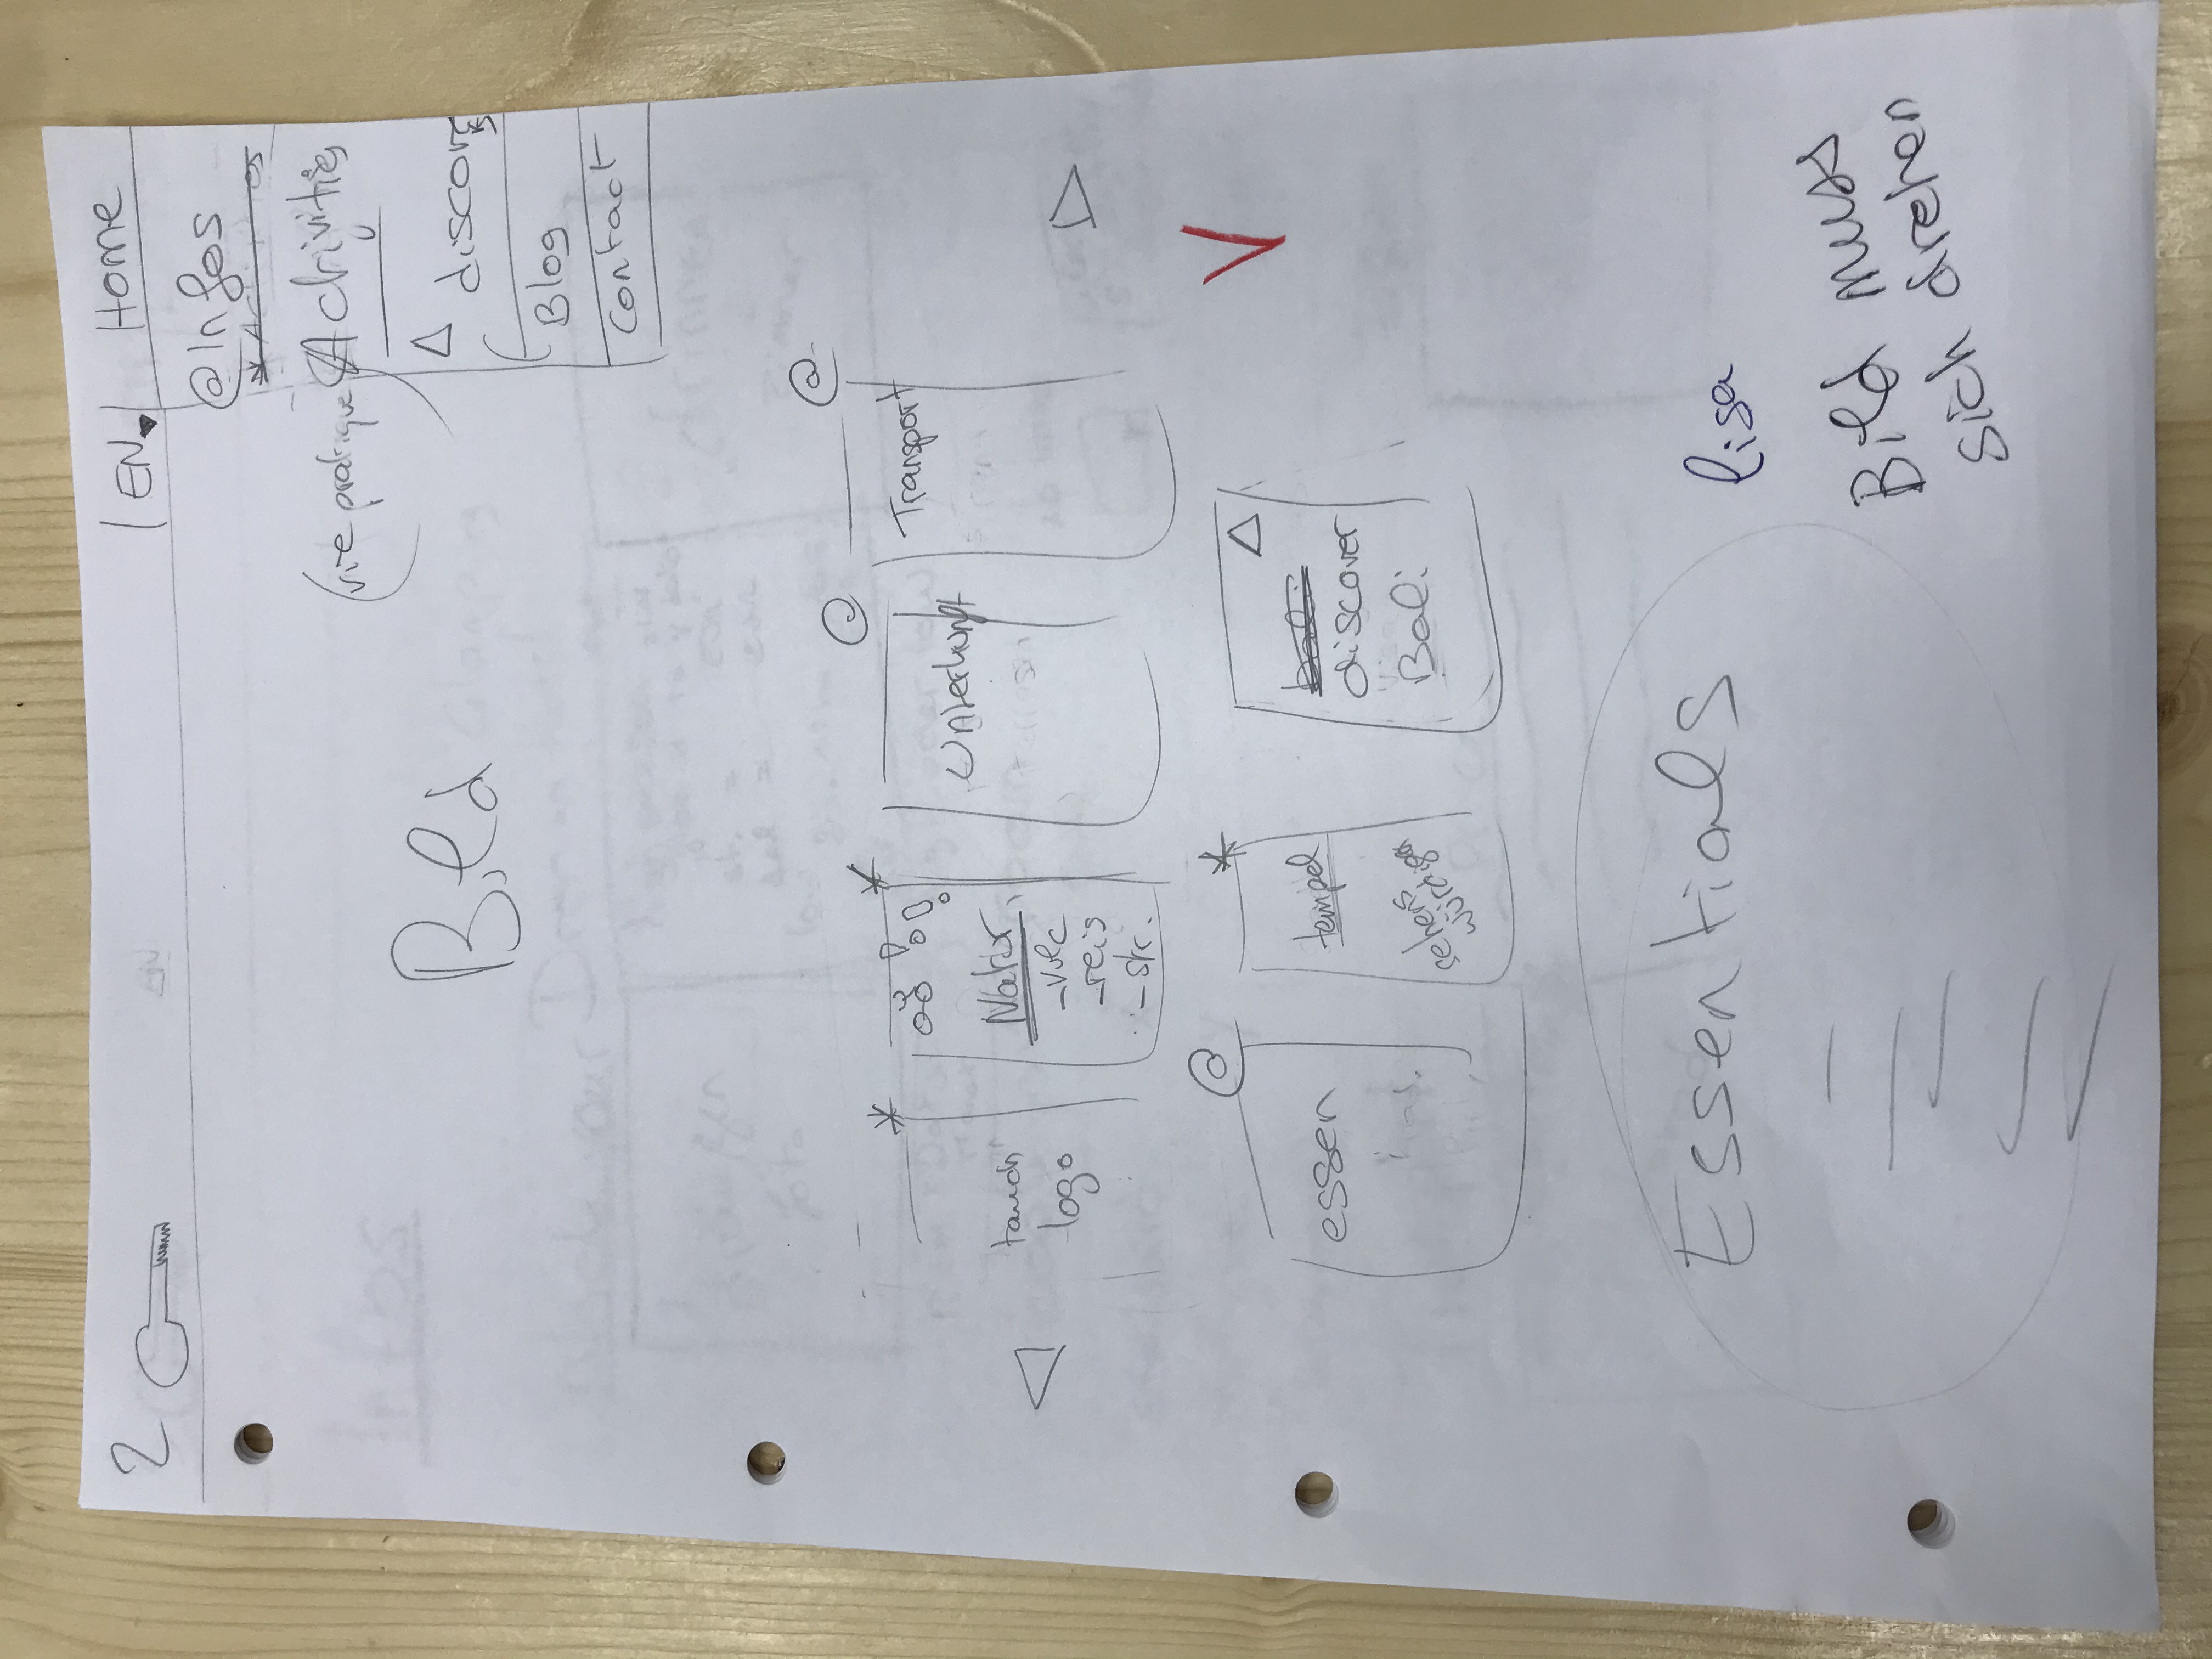 2
EN
Home
@Infos
Activities
(vie pratique)
discover
Blog
Contact
Bild
tauch
logo
Natur
-vulc
-reis
-str.
@
Unterkunft
@
Transport
@
essen
tempel
sehens
würdigk
discover
Bali
Essentials
lisa
Bild muss
sich drehen